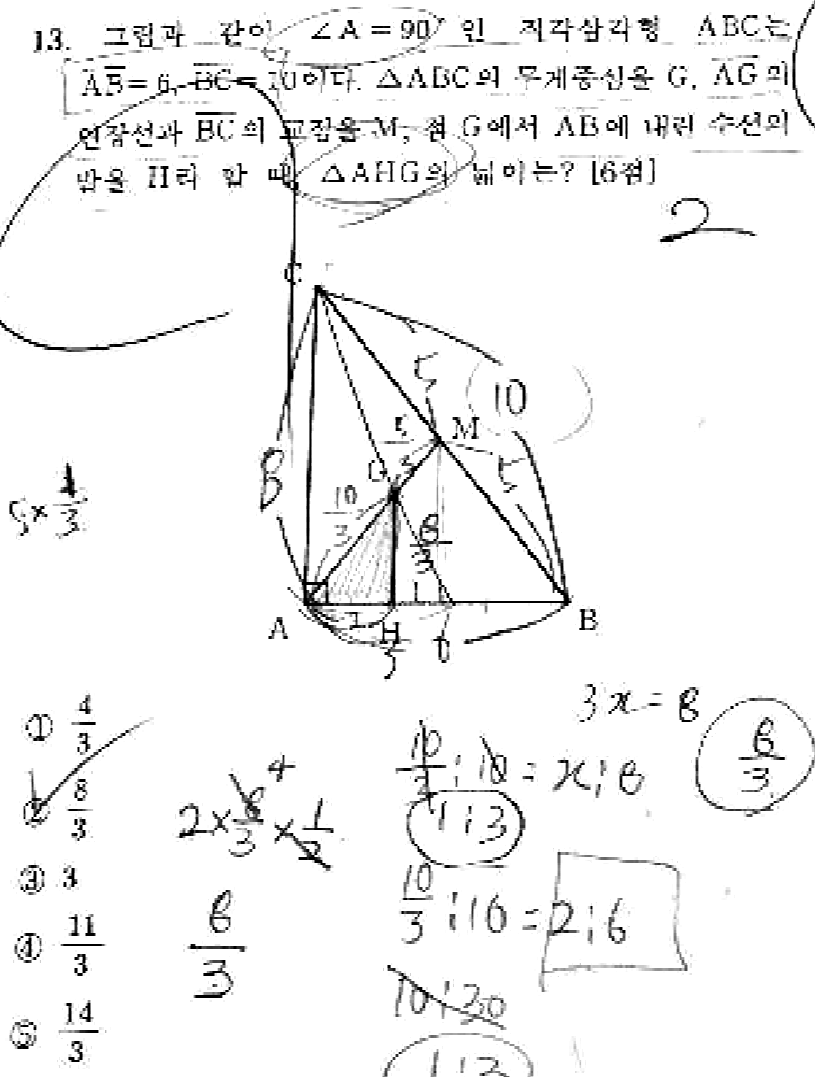 13. 그림과 같이 ∠A = 90° 인 직각삼각형 ABC는
AB = 6, BC = 10이다. △ABC의 무게중심을 G, AG의
연장선과 BC의 교점을 M, 점 G에서 AB에 내린 수선의
발을 H라 할 때, △AHG의 넓이는? [6점]
2
C
5
10
5/3
M
G
5
8
10/3
8/3
5×1/3
A
2
H
B
① 4/3
② 8/3
③ 3
④ 11/3
⑤ 14/3
2×8/3×1/2
4
8/3
3x=8
8/3
10/3:10=x:8
1:3
10/3:10=2:6
10:30
1:3